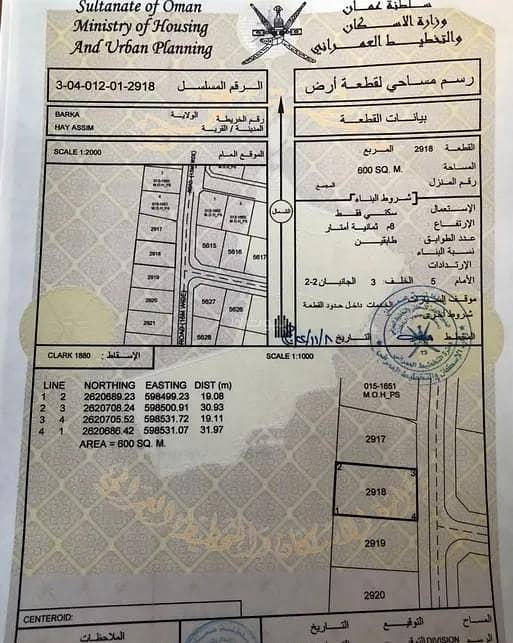 Sultanate of Oman
Ministry of Housing
And Urban Planning
سلطنة عمان
وزارة الاسكان
والتخطيط العمراني
3-04-012-01-2918 الرقم المسلسل
رسم مساحي لقطعة أرض
BARKA الولاية رقم الخريطة
HAY ASSIM المدينة / القرية
بيانات القطعة
SCALE 1:2000 الموقع العام
القطعة 2918 المربع
المساحة 600 SQ. M.
رقم المنزل المجمع
شروط البناء
الإستعمال: سكني فقط
الإرتفاع: 8م ثمانية أمتار
عدد الطوابق طابقين
نسبة البناء
الإرتدادات
الأمام 5 الخلف: 3 الجانبان 2-2
موقف السيارات الخدمات داخل حدود القطعة
شروط أخرى
المخطط التاريخ
015-1651
M.O.H_PS
015-1651
M.O.H_PS
2917
2918
2919
2920
2921
5615
5616
5617
5627
5628
5626
الشمال
CLARK 1880 الإسقاط:
SCALE 1:1000
LINE NORTHING EASTING DIST (m)
1 2 2620689.23 598499.23 19.08
2 3 2620708.24 598500.91 30.93
3 4 2620705.52 598531.72 19.11
4 1 2620686.42 598531.07 31.97
AREA = 600 SQ. M.
015-1651
M.O.H_PS
2917
2 3
2918
1 4
2919
2920
CENTEROID:
الملاحظات
التاريخ التوقيع المساح
DIVISION